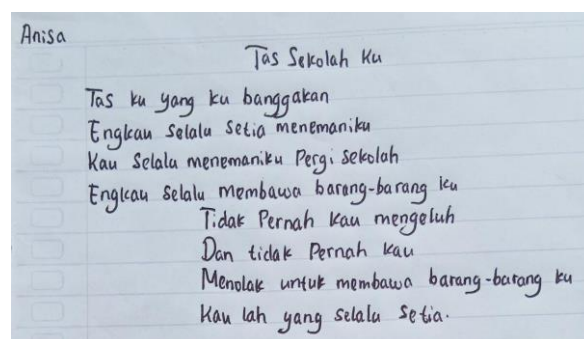 Anisa
Tas Sekolah Ku
Tas ku yang ku banggakan
Engkau selalu setia menemaniku
Kau selalu menemaniku Pergi sekolah
Engkau selalu membawa barang-barang ku
Tidak Pernah kau mengeluh
Dan tidak Pernah kau
Menolak untuk membawa barang-barang ku
Kau lah yang selalu setia.